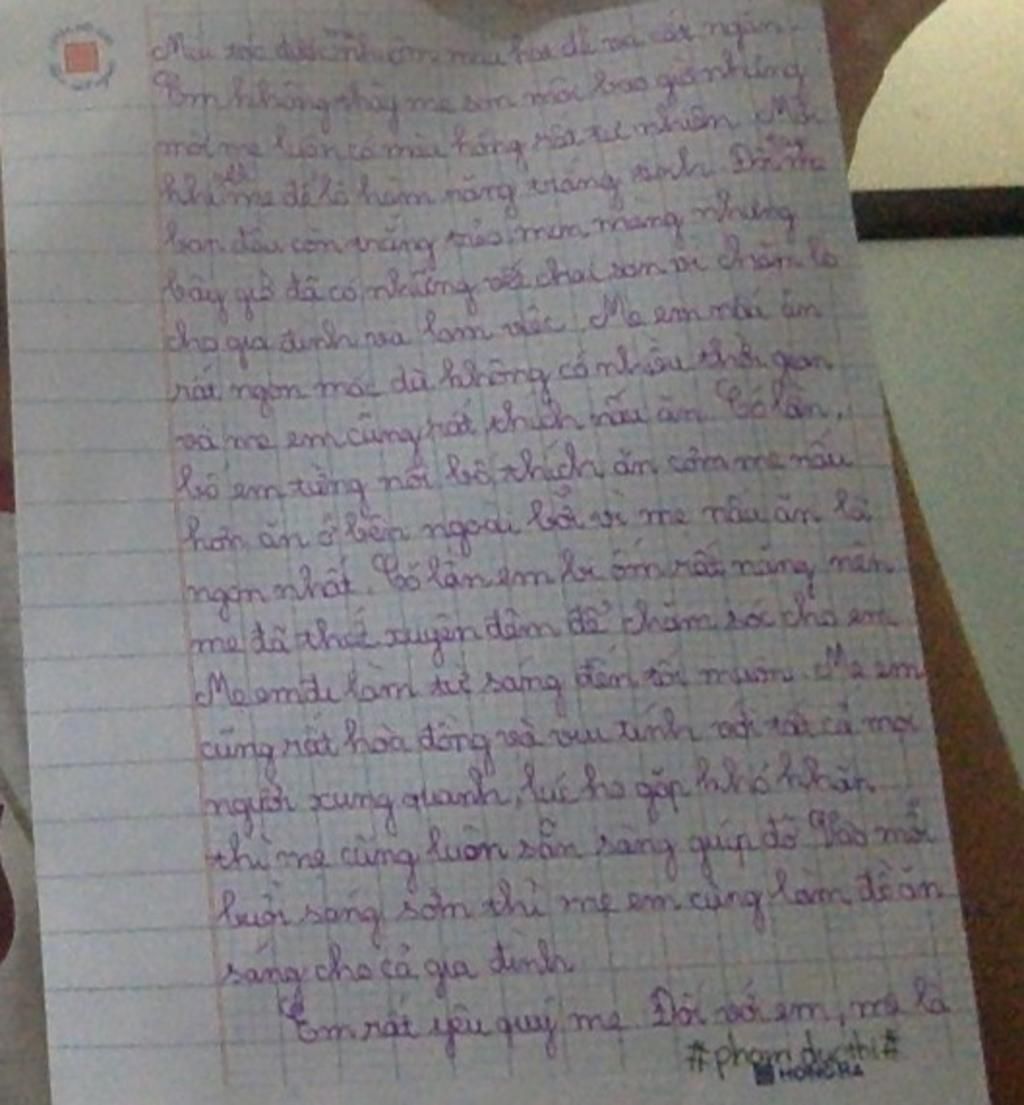 Mái tóc được nhuộm màu hạt dẻ và cắt ngắn.
Em không thấy mẹ son môi bao giờ nhưng
môi mẹ luôn có màu hồng rất tự nhiên. Mỗi
khi mẹ để lộ hàm răng trắng tinh. Đôi tay mẹ
ban đầu còn trắng trẻo, mịn màng nhưng
bây giờ đã có những vết chai sạn vì chăm lo
cho gia đình và làm việc. Mẹ em nấu ăn
rất ngon mặc dù không có nhiều thời gian
và mẹ em cũng rất thích nấu ăn. Có lần,
bố em từng nói bố thích ăn cơm mẹ nấu
hơn ăn ở bên ngoài bởi vì mẹ nấu ăn là
ngon nhất. Có lần em bị ốm rất nặng nên
mẹ đã thức xuyên đêm để chăm sóc cho em
Mẹ em đi làm từ sáng đến tối muộn. Mẹ em
cũng rất hoà đồng và vui tính với tất cả mọi
người xung quanh, lúc họ gặp khó khăn
thì mẹ cũng luôn sẵn sàng giúp đỡ. Vào mỗi
buổi sáng sớm thì mẹ em cũng làm đồ ăn
sáng cho cả gia đình
Em rất yêu quý mẹ. Đối với em, mẹ là
#phamducthi#
HONG HA